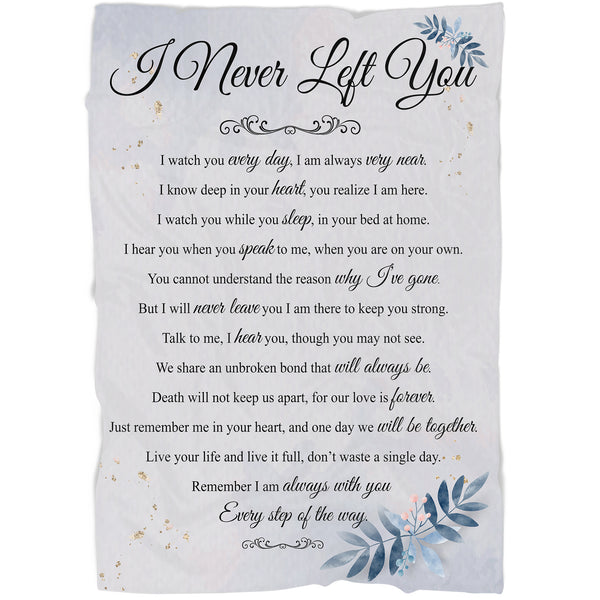 I Never Left You
I watch you every day, I am always very near.
I know deep in your heart, you realize I am here.
I watch you while you sleep, in your bed at home.
I hear you when you speak to me, when you are on your own.
You cannot understand the reason why I've gone.
But I will never leave you I am there to keep you strong.
Talk to me, I hear you, though you may not see.
We share an unbroken bond that will always be.
Death will not keep us apart, for our love is forever.
Just remember me in your heart, and one day we will be together.
Live your life and live it full, don't waste a single day.
Remember I am always with you
Every step of the way.